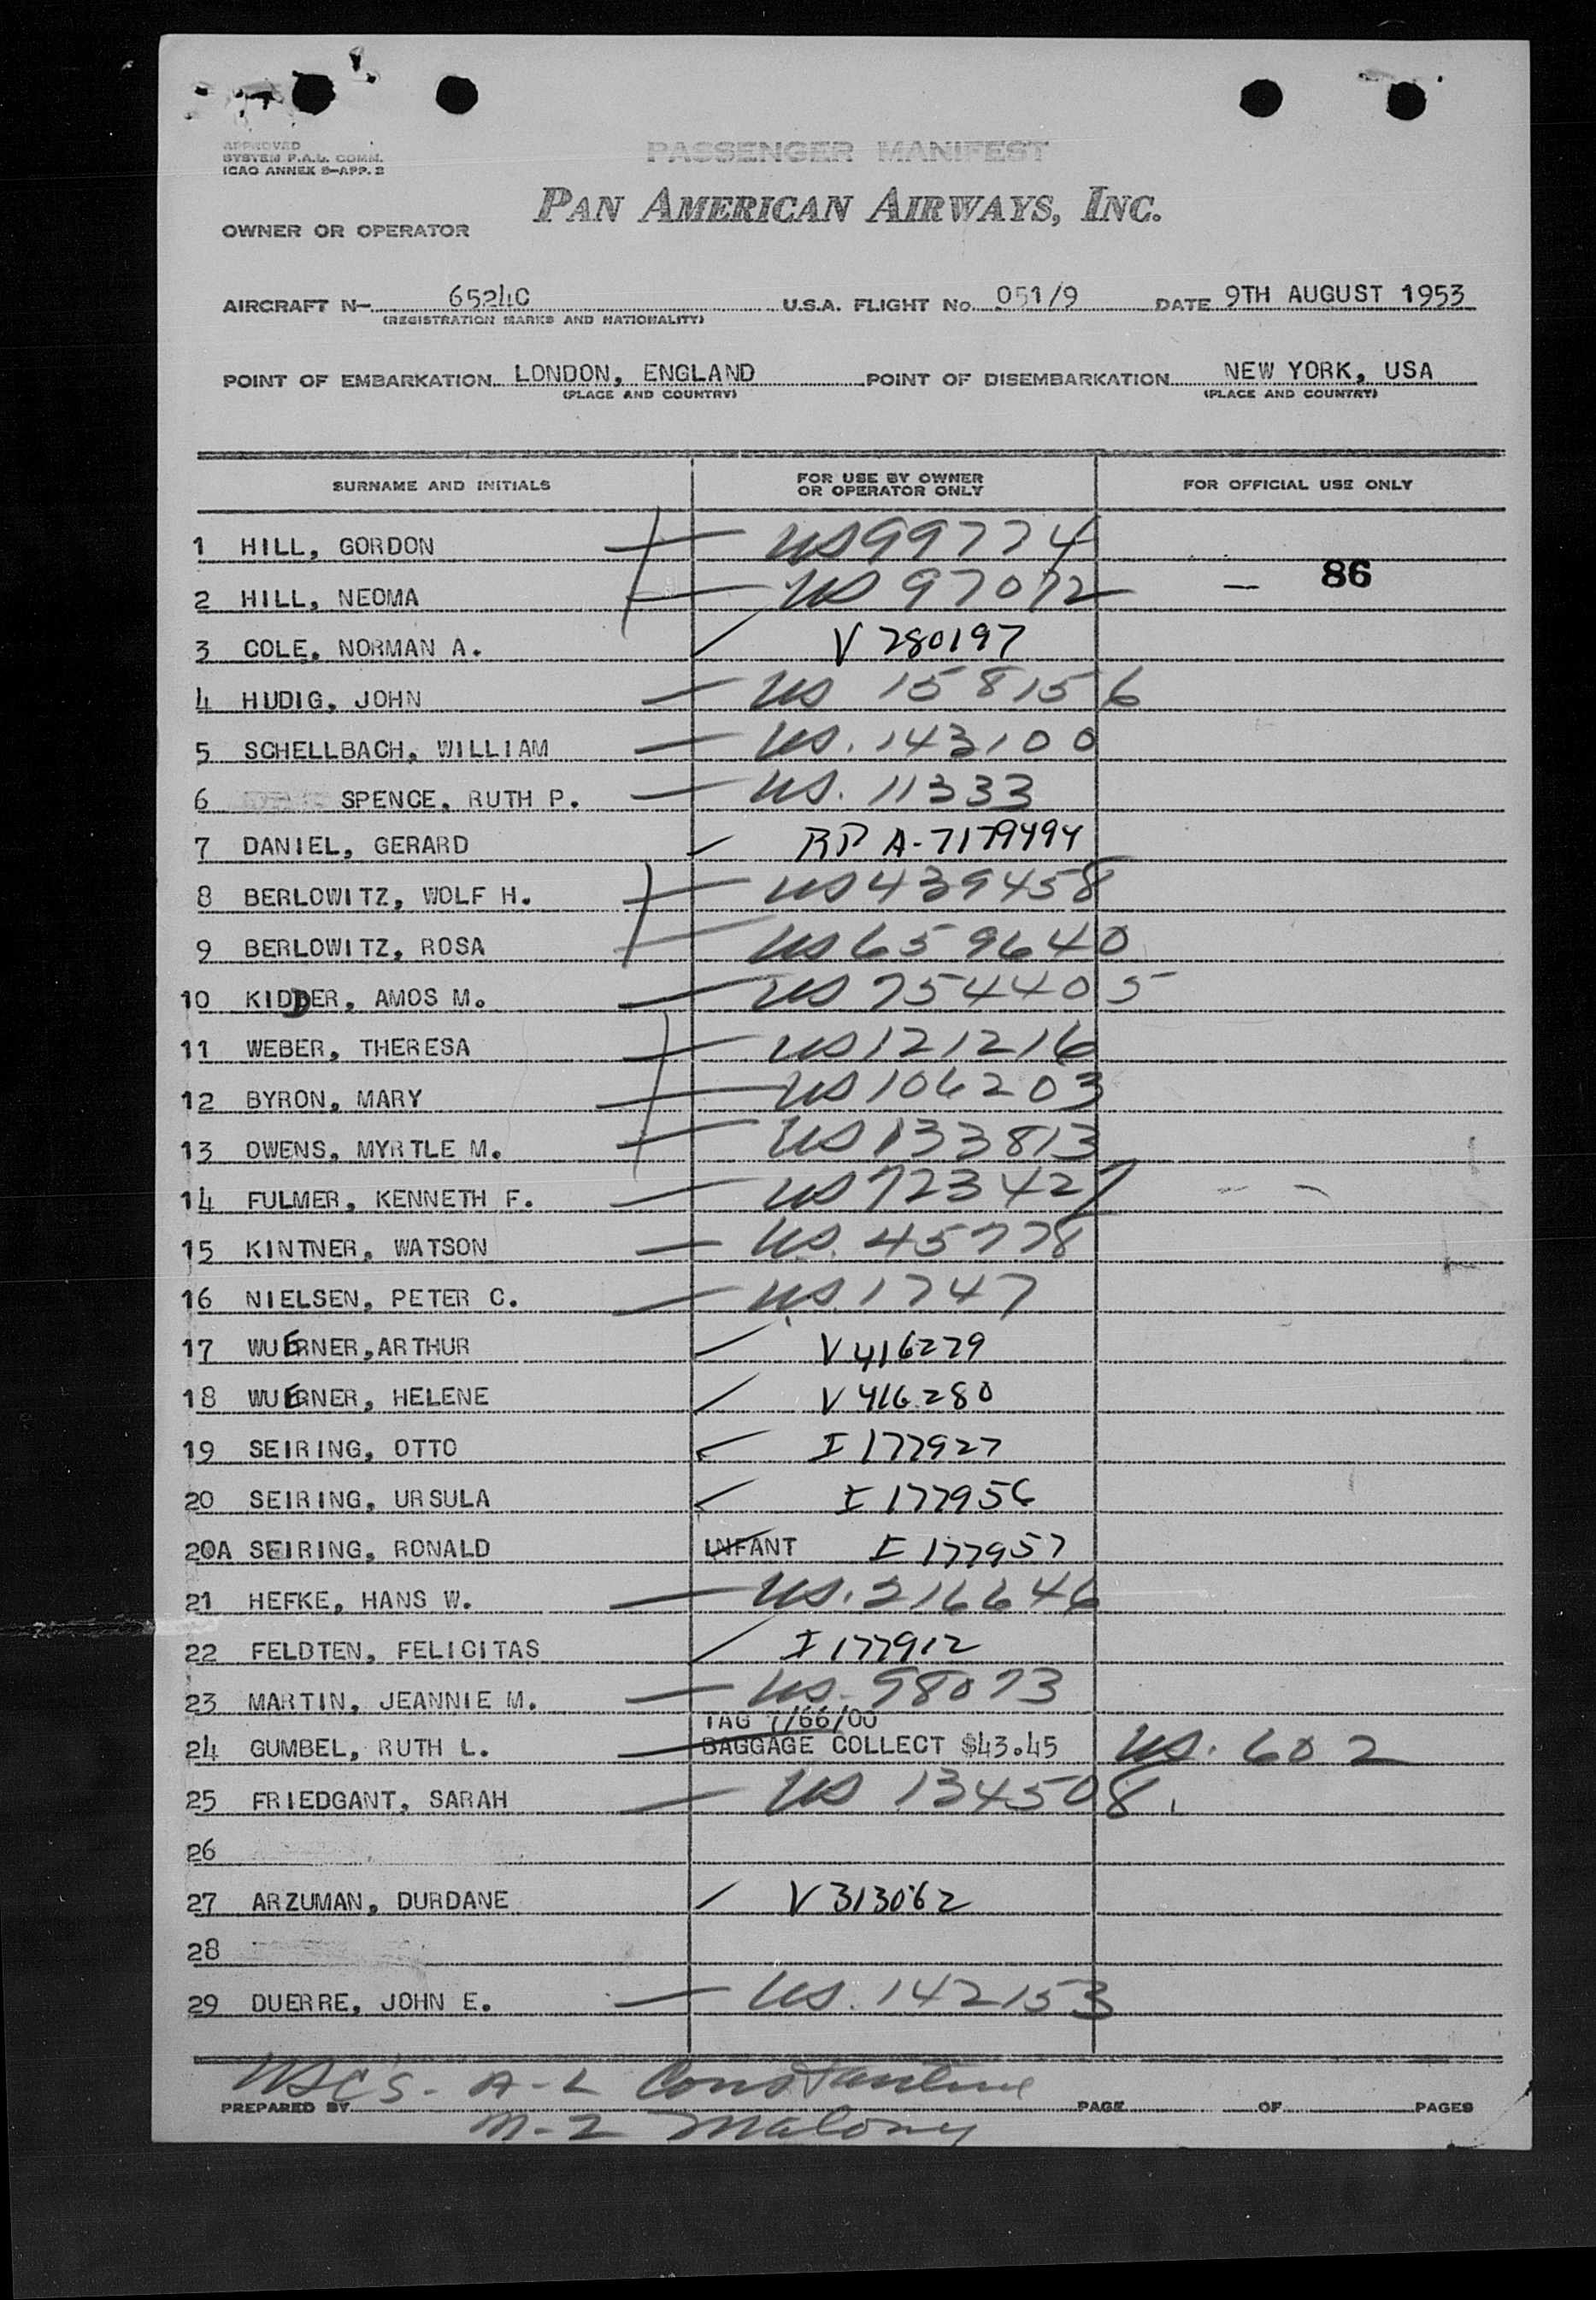 APPROVED
SYSTEM P.A.L. COMM.
ICAO ANNEX 9-APP. 2
PASSENGER MANIFEST
PAN AMERICAN AIRWAYS, INC.
OWNER OR OPERATOR
AIRCRAFT N- 6524C U.S.A. FLIGHT No. 051/9 DATE 9TH AUGUST 1953
(REGISTRATION MARKS AND NATIONALITY)
POINT OF EMBARKATION LONDON, ENGLAND POINT OF DISEMBARKATION NEW YORK, USA
(PLACE AND COUNTRY) (PLACE AND COUNTRY)
SURNAME AND INITIALS FOR USE BY OWNER OR OPERATOR ONLY FOR OFFICIAL USE ONLY
1 HILL, GORDON US 99774
2 HILL, NEOMA US 97072 — 86
3 COLE, NORMAN A. V 280197
4 HUDIG, JOHN US 158156
5 SCHELLBACH, WILLIAM US. 143100
6 SPENCE, RUTH P. US. 11333
7 DANIEL, GERARD RP A-7179494
8 BERLOWITZ, WOLF H. US 439458
9 BERLOWITZ, ROSA US 659640
10 KIDDER, AMOS M. US 754405
11 WEBER, THERESA US 121216
12 BYRON, MARY US 106203
13 OWENS, MYRTLE M. US 133813
14 FULMER, KENNETH F. US 723427
15 KINTNER, WATSON US. 45778
16 NIELSEN, PETER C. US. 1747
17 WUERNER,ARTHUR V 416279
18 WUERNER, HELENE V 416280
19 SEIRING, OTTO I 177927
20 SEIRING, URSULA I 177956
20A SEIRING, RONALD INFANT I 177957
21 HEFKE, HANS W. US. 216646
22 FELDTEN, FELICITAS I 177912
23 MARTIN, JEANNIE M. US. 98073
TAG 7/66/00
24 GUMBEL, RUTH L. BAGGAGE COLLECT $43.45 US. 602
25 FRIEDGANT, SARAH US 134508
26
27 ARZUMAN, DURDANE V 313062
28
29 DUERRE, JOHN E. US. 142153
USC'S - A-L Constantine
PREPARED BY PAGE OF PAGES
M-Z Maloney